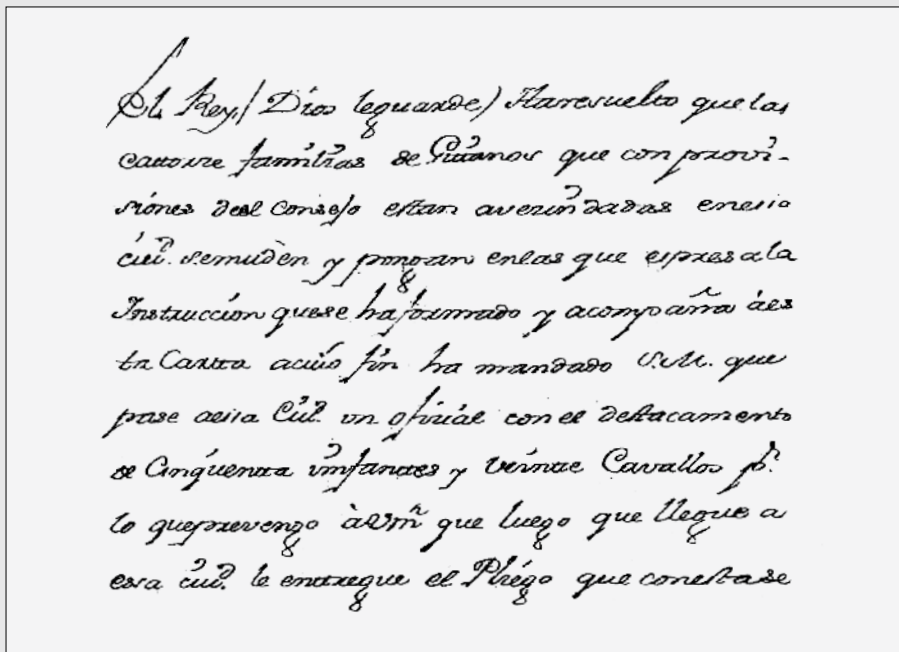 El Rey (Dios leguarde) Harresuelto que las
catorze familias de Gitanos que con provi-
siones deel Consejo estan avezindadas enesa
ciud. semuden y pongan enlas que espresa la
Instruccion quese ha formado y acompaña áes
ta Carta acuio fin ha mandado S.M. que
pase aesa Ciud. un ofizial con el destacamento
de Cinquenta imfantes y veinte Cavallos pr.
lo queprevengo àvsmd que luego que llegue a
esa ciud. le entregue el Pliego que conesta se